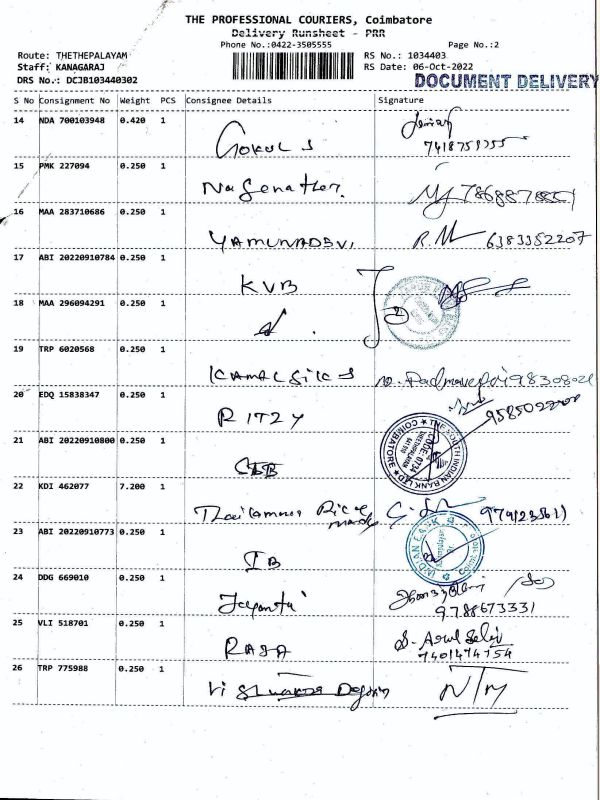 THE PROFESSIONAL COURIERS, Coimbatore
Delivery Runsheet - PRR
Phone No.:0422-3505555 Page No.:2
Route: THETHEPALAYAM RS No.: 1034403
Staff: KANAGARAJ RS Date: 06-Oct-2022
DRS No.: DCJB103440302 DOCUMENT DELIVERY
S No Consignment No Weight PCS Consignee Details Signature
14 NDA 700103948 0.420 1
GOKUL S
15 PMK 227094 0.250 1
16 MAA 283710686 0.250 1
YAMUNADEVI R.M 6383352207
17 ABI 20220910784 0.250 1
KVB
18 MAA 296094291 0.250 1
19 TRP 6020568 0.250 1
KAMAL SILKS
20 EDQ 15838347 0.250 1
RITZY
21 ABI 20220910800 0.250 1
THE SOUTH INDIAN BANK LTD COIMBATORE CODE: 0734
22 KDI 462077 7.200 1
23 ABI 20220910773 0.250 1
IB INDIAN BANK
24 DDG 669010 0.250 1
Jayanthi
9788673331
25 VLI 518701 0.250 1
RAJA S. Arul Selvi
7401474154
26 TRP 775988 0.250 1
N/M